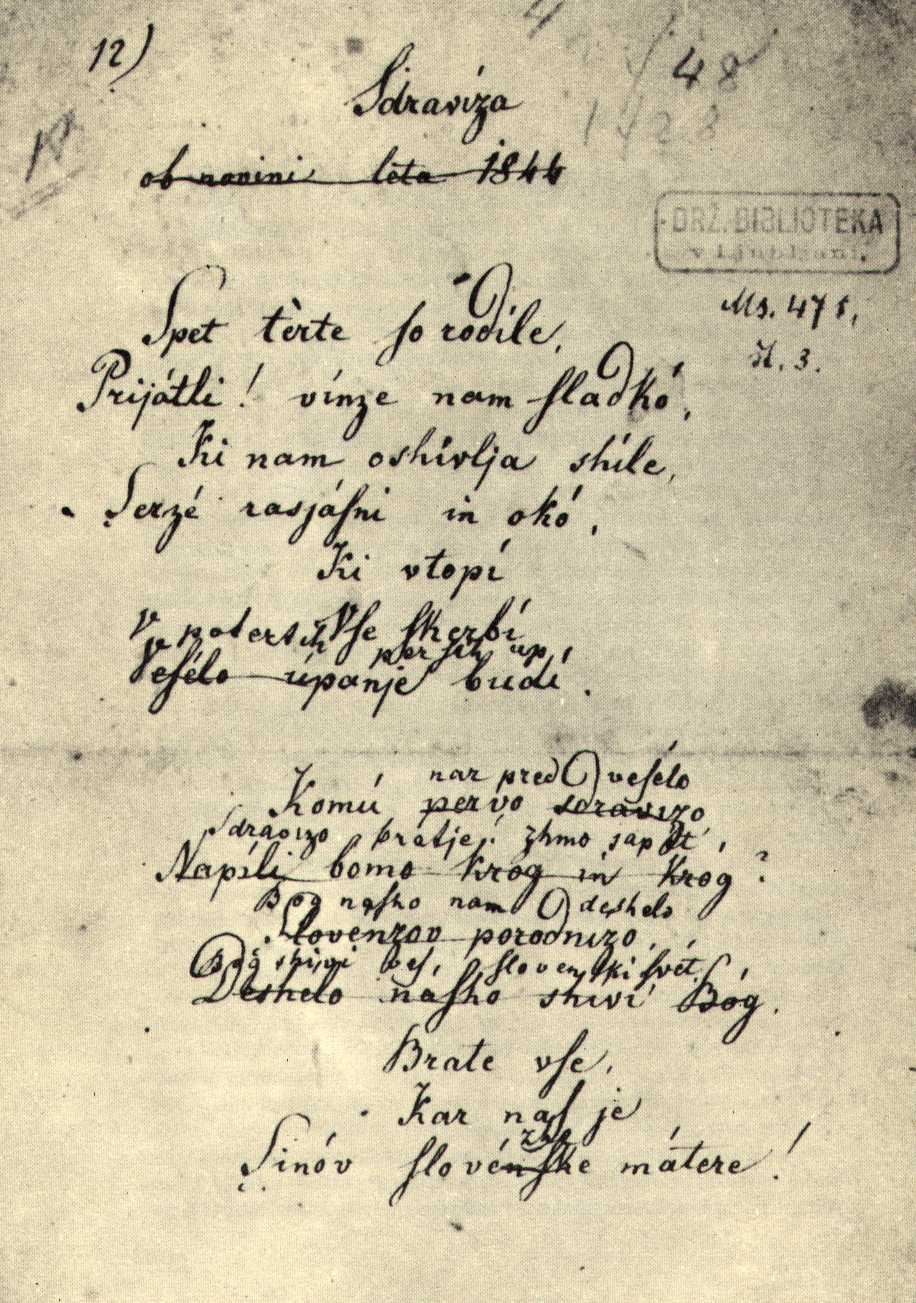 12)
48
Sdravíza
ob novini léta 1844
DRŽ. BIBLIOTEKA
v Ljubljani.
Ms. 471,
št. 3.
Spet tèrte ſo rodíle,
Prijátli! vínze nam ſladkó,
Ki nam oshívlja shíle,
Serzé rasjáſni in okó,
Ki vtopí
Vſe ſkerbí
V potertih perſih up
Veſélo úpanje budí.
nar pred veſélo
Komú pervo sdravizo
Sdravizo bratje! zhmo sapét',
Napíli bomo krog in krog?
Bog naſho nam deshelo
Slovénzov porodnizo,
Bog shivi veſ, ſlovenſki ſvét,
Deshelo naſho shiví Bóg.
Brate vſe,
Kar naſ je
zhe
Sinóv ſlovénſke mátere!